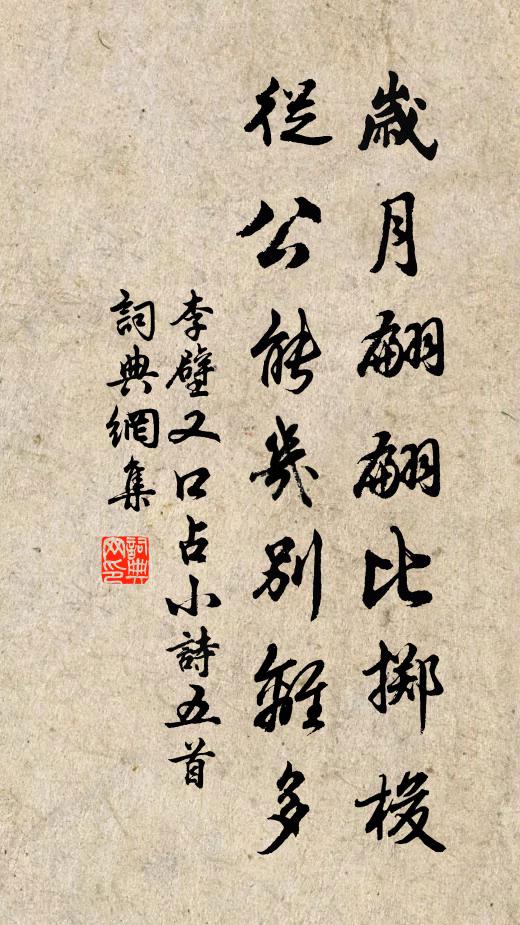 歲月翩翩比擲梭
從公能幾別離多
李壁又口占小詩五首
詞典網集
詞典网印